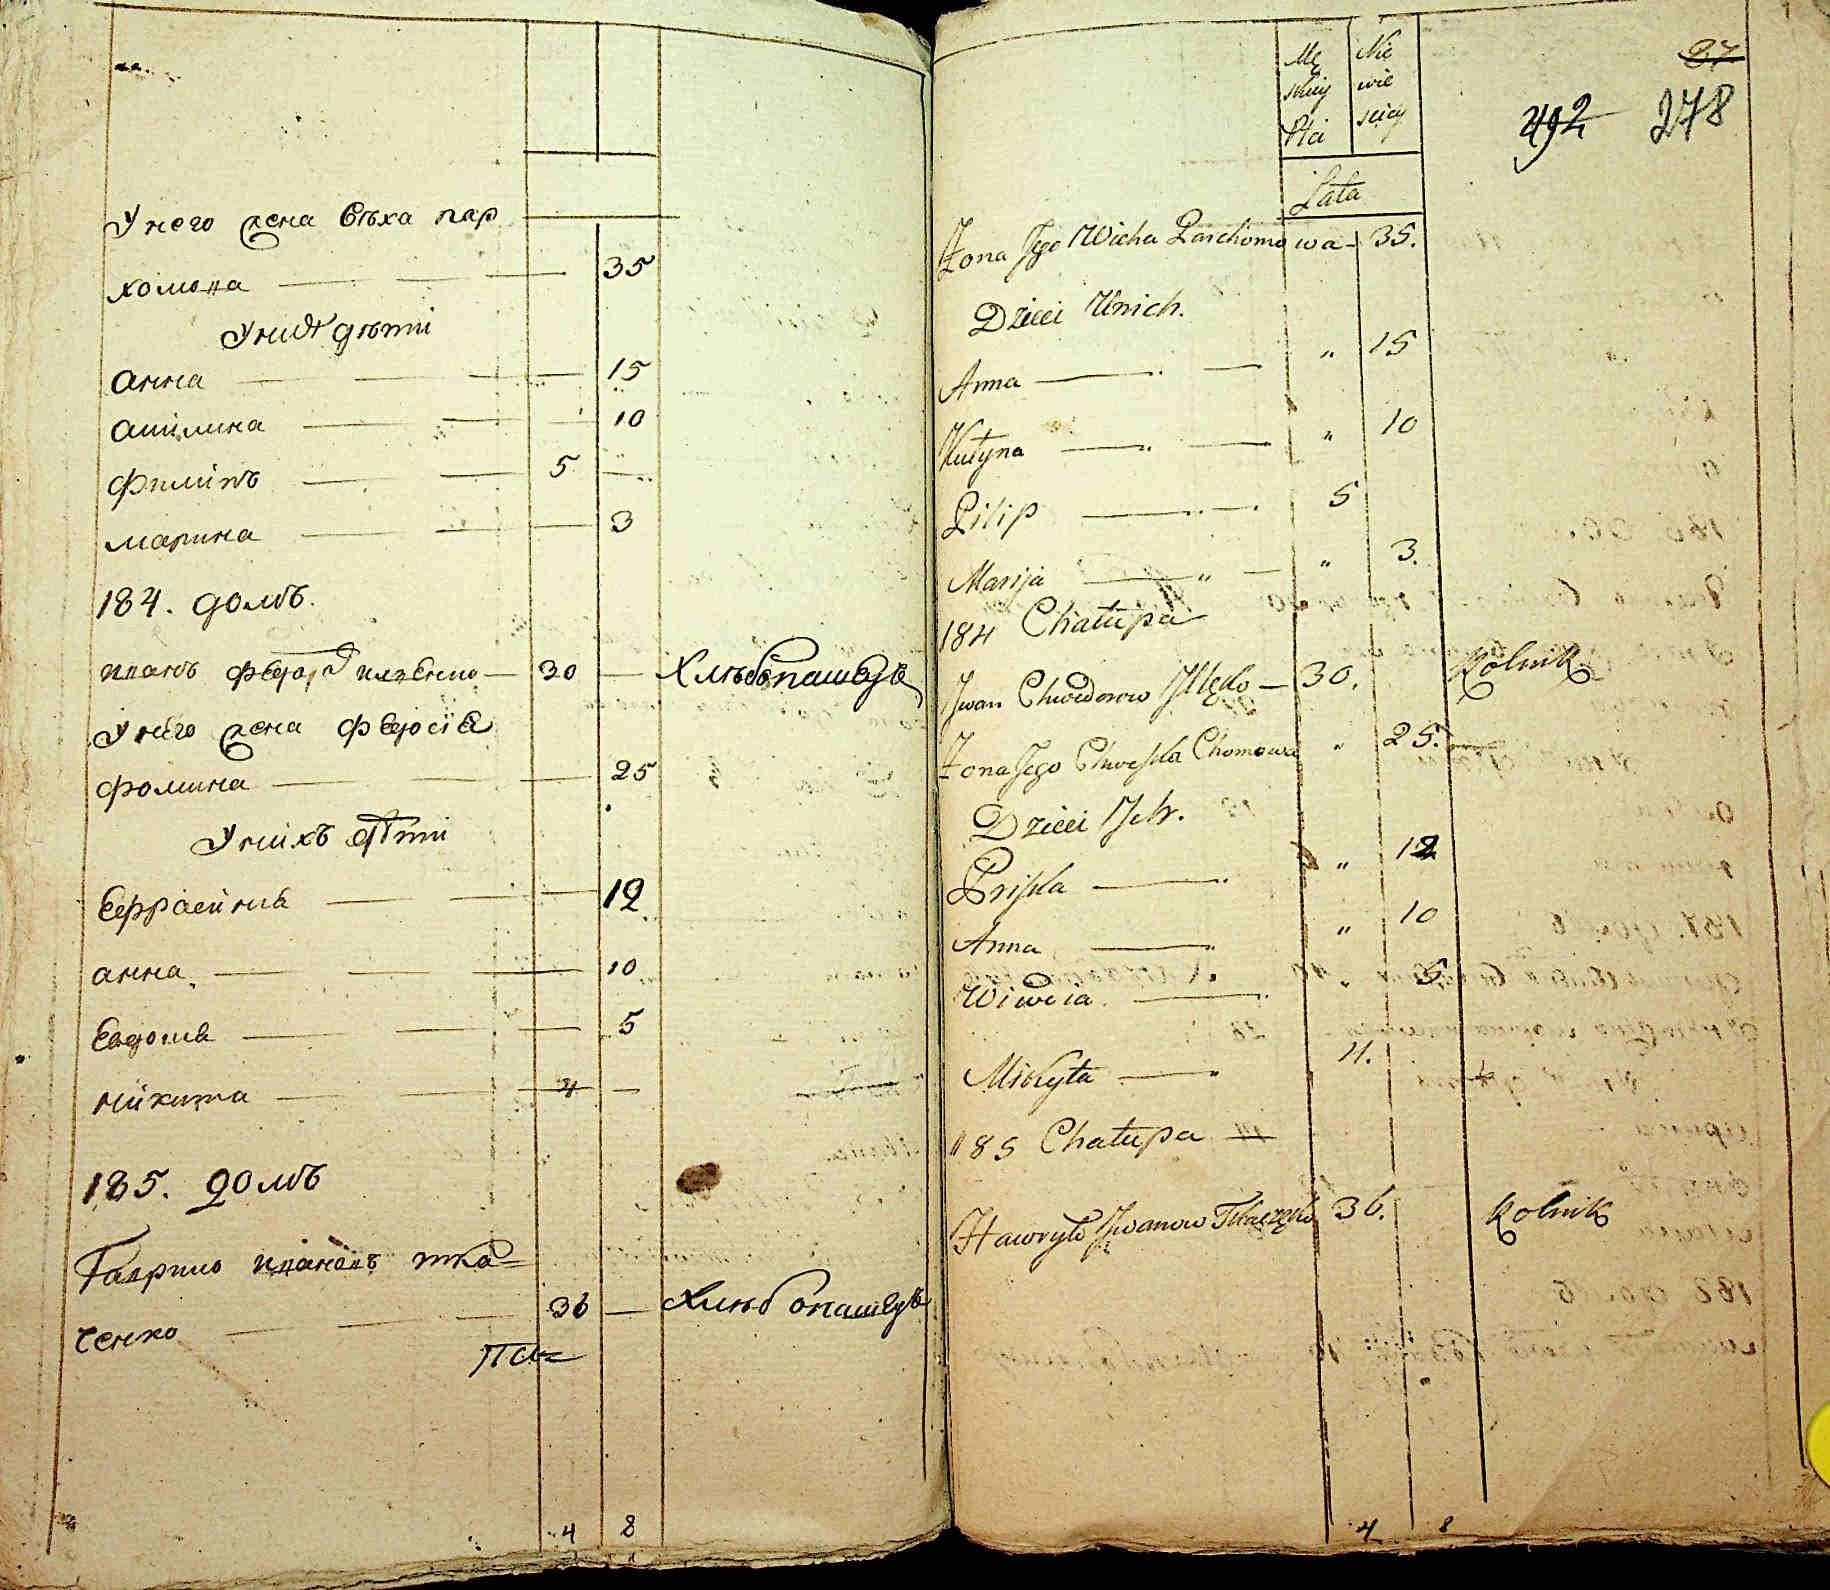 У него жена Евха пар
хомова 35
У них дѣти
Анна 15
Акилина 10
Филипъ 5
Марина 3
184. домъ.
Иванъ Федоров 30 Хлѣбопашецъ
У него жена Федосiя
Фомина 25
У нихъ дѣти
Ефросинiя 12
Анна 10
Евдокiя 5
Никита 4
185. домъ
Гаврило Ивановъ тка=
ченко 36 Хлѣбопашецъ
4 8
Mę Nie
skiey wie
Płci sciey
87
492 278
Lata
Żona Jego Wicha Parchomowa 35.
Dzieci Unich.
Anna " 15
Kulyna " 10
Pilip 5
Marija " 3.
184 Chałupa
Jwan Chwedorow 30. Rolnik
Żona Jego Chweśka Chomowa " 25.
Dzieci Ich.
Priska " 12
Anna " 10
Wiwdia " 5
Mikyta 4.
185 Chałupa
Hawryło Jwanow Tkaczeńko 36. Rolnik
4 8